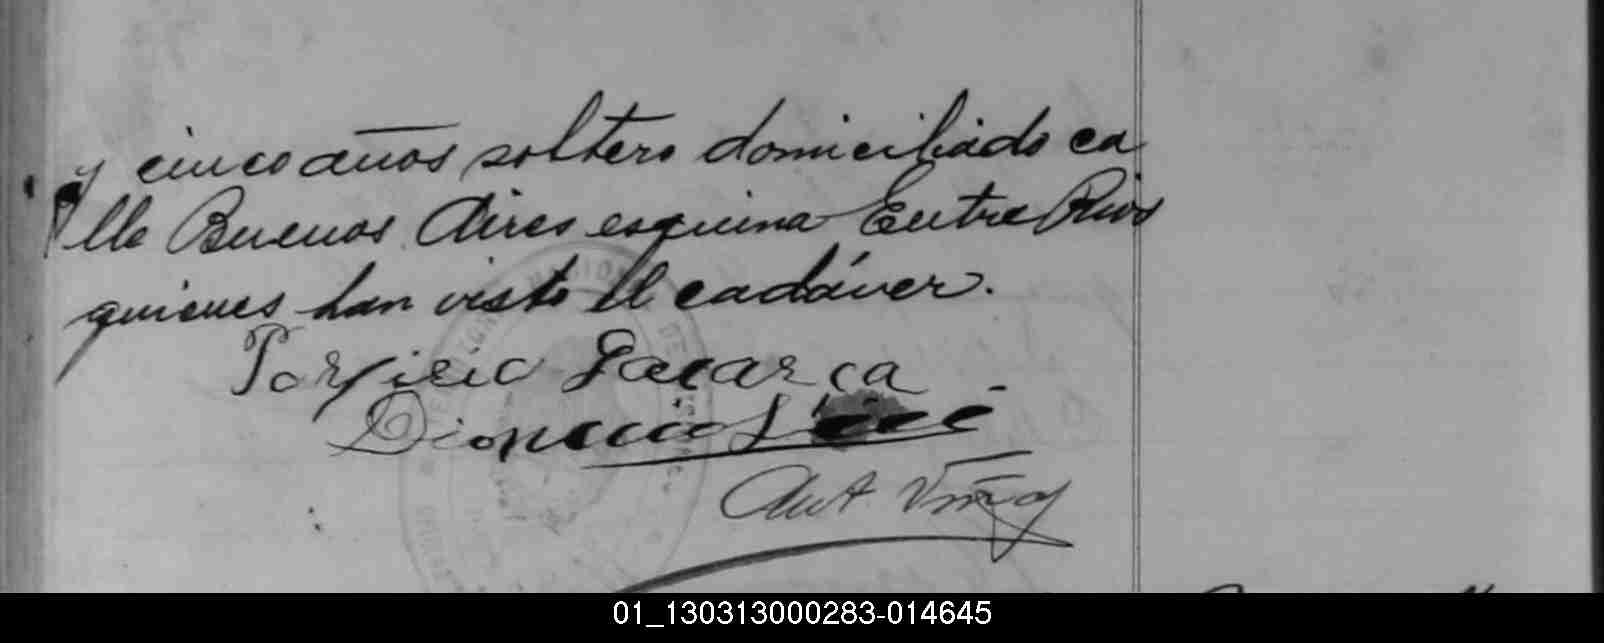 y cinco años soltero domiciliado ca
lle Buenos Aires esquina Entre Rios
quienes han visto el cadáver.
Porfirio
Dionicio
Ant. Viñas
01_130313000283-014645